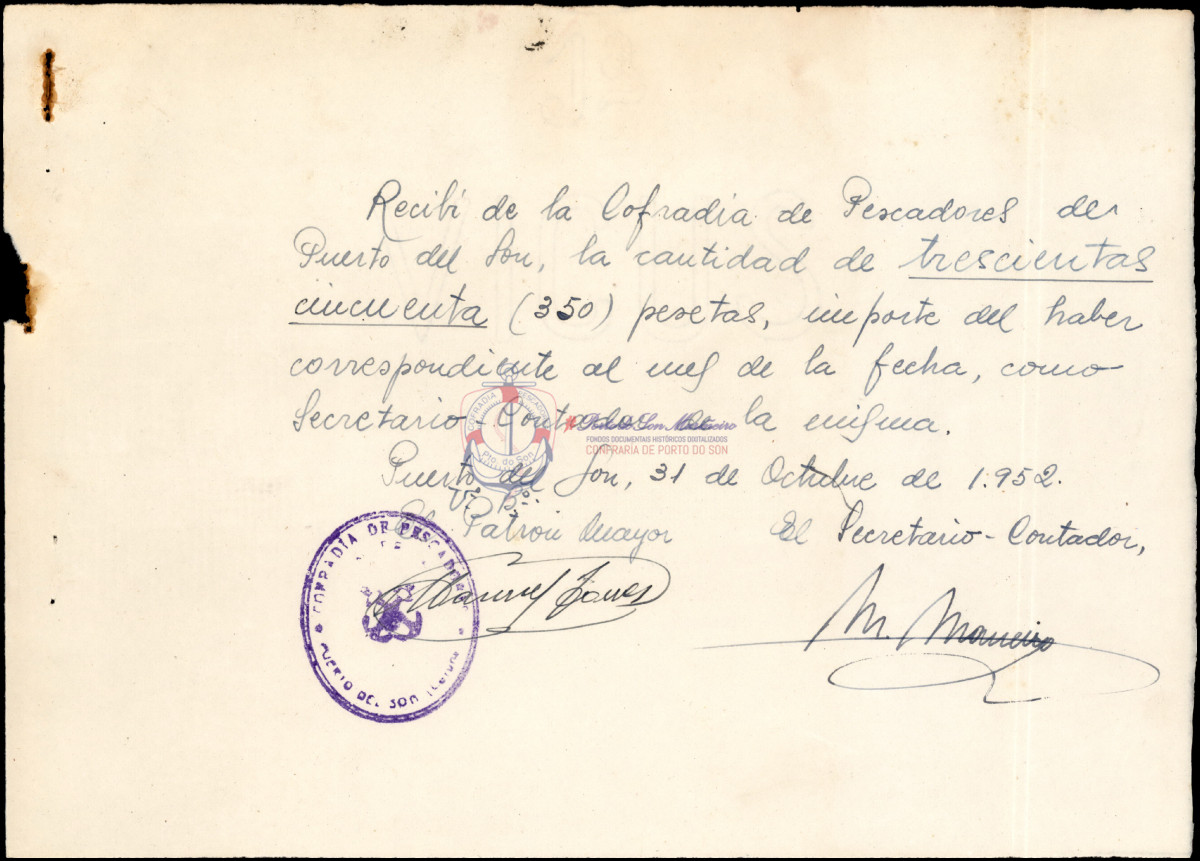 Recibí de la Cofradia de Pescadores de
Puerto del Son, la cantidad de trescientas
cincuenta (350) pesetas, importe del haber
correspondiente al mes de la fecha, como
Secretario-Contador de la misma.
Puerto del Son, 31 de Octubre de 1.952.
Vº Bº:
El Patrón Mayor
El Secretario-Contador,
Manuel
M.
COFRADIA DE PESCADORES
DE
PUERTO DEL SON
COFRADIA
PESCADORES
Pto. do Son
Porto do Son Mariñeiro
FONDOS DOCUMENTAIS HISTÓRICOS DIXITALIZADOS
CONFRARÍA DE PORTO DO SON